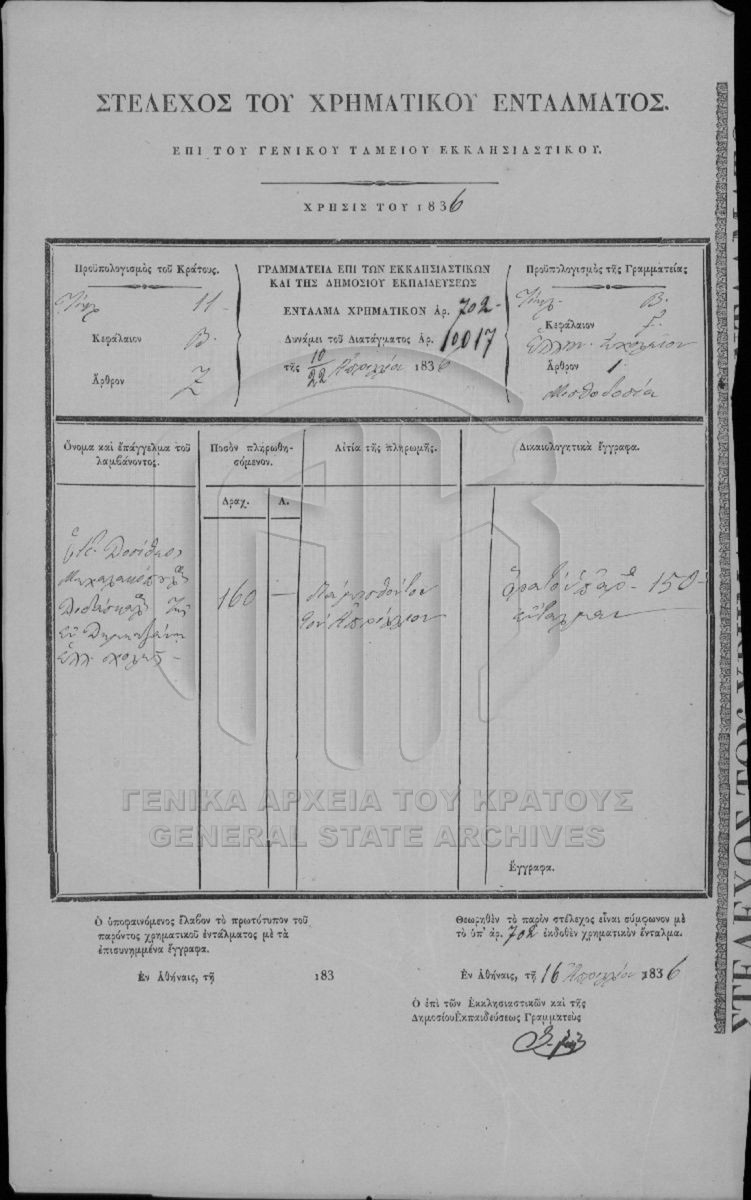 ΣΤΕΛΕΧΟΣ ΤΟΥ ΧΡΗΜΑΤΙΚΟΥ ΕΝΤΑΛΜΑΤΟΣ.
ΕΠΙ ΤΟΥ ΓΕΝΙΚΟΥ ΤΑΜΕΙΟΥ ΕΚΚΛΗΣΙΑΣΤΙΚΟΥ.
ΧΡΗΣΙΣ ΤΟΥ 1836
Προϋπολογισμὸς τοῦ Κράτους.
Τίτλ 11-
Κεφάλαιον Β.
Ἄρθρον Ζ
ΓΡΑΜΜΑΤΕΙΑ ΕΠΙ ΤΩΝ ΕΚΚΛΗΣΙΑΣΤΙΚΩΝ
ΚΑΙ ΤΗΣ ΔΗΜΟΣΙΟΥ ΕΚΠΑΙΔΕΥΣΕΩΣ
ΕΝΤΑΛΜΑ ΧΡΗΜΑΤΙΚΟΝ ΑΡ. 702-
Δυνάμει τοῦ Διατάγματος Ἀρ. 10017
τῆς 10/22 Ἀπριλίου 1836
Προϋπολογισμὸς τῆς Γραμματείας
Τίτλ. Β.
Κεφάλαιον
Ἑλλην. Σχολεῖον
Ἄρθρον 1.
Μισθοδοσία
Ὄνομα καὶ ἐπάγγελμα τοῦ
λαμβάνοντος.
Ποσὸν πληρωθη-
σόμενον.
Αἰτία τῆς πληρωμῆς.
Δικαιολογητικὰ ἔγγραφα.
Δραχ. Λ.
Δοσίθεος
Διδάσκαλος τῆς
ἐν Δημητσάνῃ
ἑλλ. σχολῆς -
160 -
τὸν Ἀπρίλιον
150-
ἔνταλμα
Ἔγγραφα.
ΓΕΝΙΚΑ ΑΡΧΕΙΑ ΤΟΥ ΚΡΑΤΟΥΣ
GENERAL STATE ARCHIVES
Ὁ ὑποφαινόμενος ἔλαβον τὸ πρωτότυπον τοῦ
παρόντος χρηματικοῦ ἐντάλματος μὲ τὰ
ἐπισυνημμένα ἔγγραφα.
Ἐν Ἀθήναις, τῇ 183
Θεωρηθὲν τὸ παρὸν στέλεχος εἶναι σύμφωνον μὲ
τὸ ὑπ' ἀρ. 702 ἐκδοθὲν χρηματικὸν ἔνταλμα.
Ἐν Ἀθήναις, τῇ 16 Ἀπριλίου 1836
Ὁ ἐπὶ τῶν Ἐκκλησιαστικῶν καὶ τῆς
Δημοσίου Ἐκπαιδεύσεως Γραμματεὺς